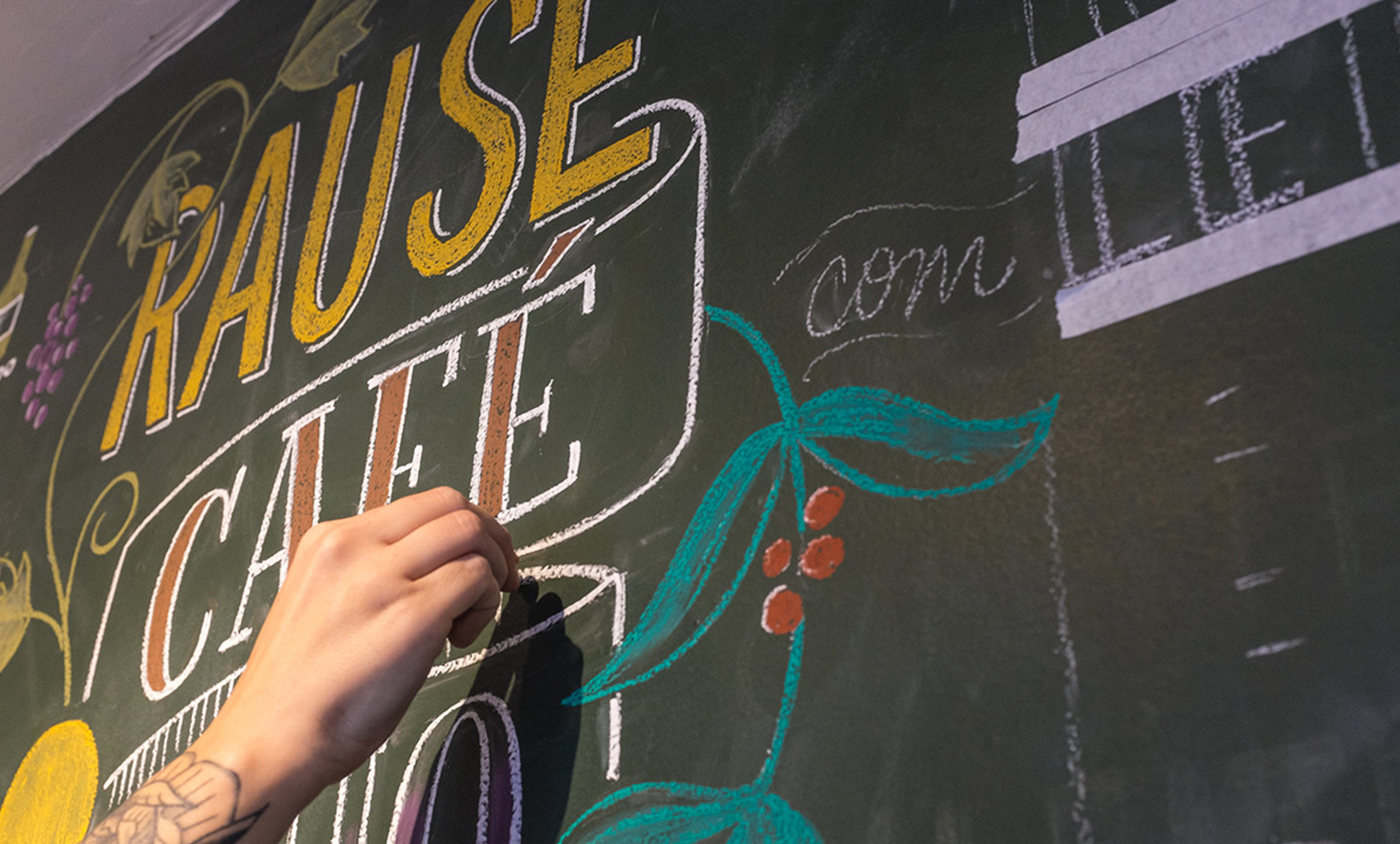 RAUSE
CAFÉ
com